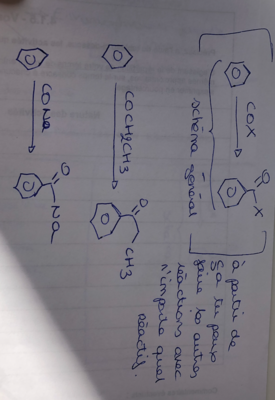 COX
O
X
schéma général
à partir de
ça tu peux
faire les autres
réactions avec
n'importe quel
réactif.
COCH2CH3
O
CH3
CONa
O
Na